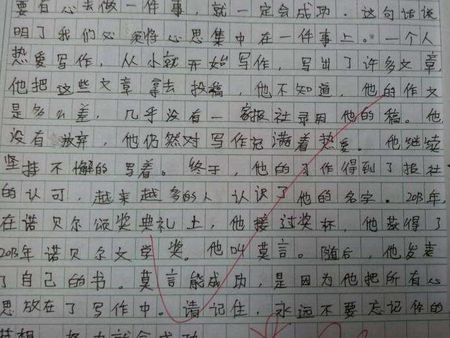 要有心去做一件事，就一定会成功。这句话说
明了我们必须将心思集中在一件事上。一个人
热爱写作，从小就开始写作，写出了许多文章，
他把这些文章拿去投稿，他不知道，他的作文
是多么差，几乎没有一家报社录用他的稿。他
没有放弃，他仍然对写作充满着热爱。他继续
坚持不懈的写着。终于，他的工作得到了报社
的认可，越来越多的人认识了他的名字。2013年，
在诺贝尔颁奖典礼上，他接过奖杯，他获得了
2013年诺贝尔文学奖。他叫莫言。随后，他发表
了自己的书。莫言能成功，是因为他把所有心
思放在了写作中。请记住，永远不要忘记你的
梦想，努力就会成功